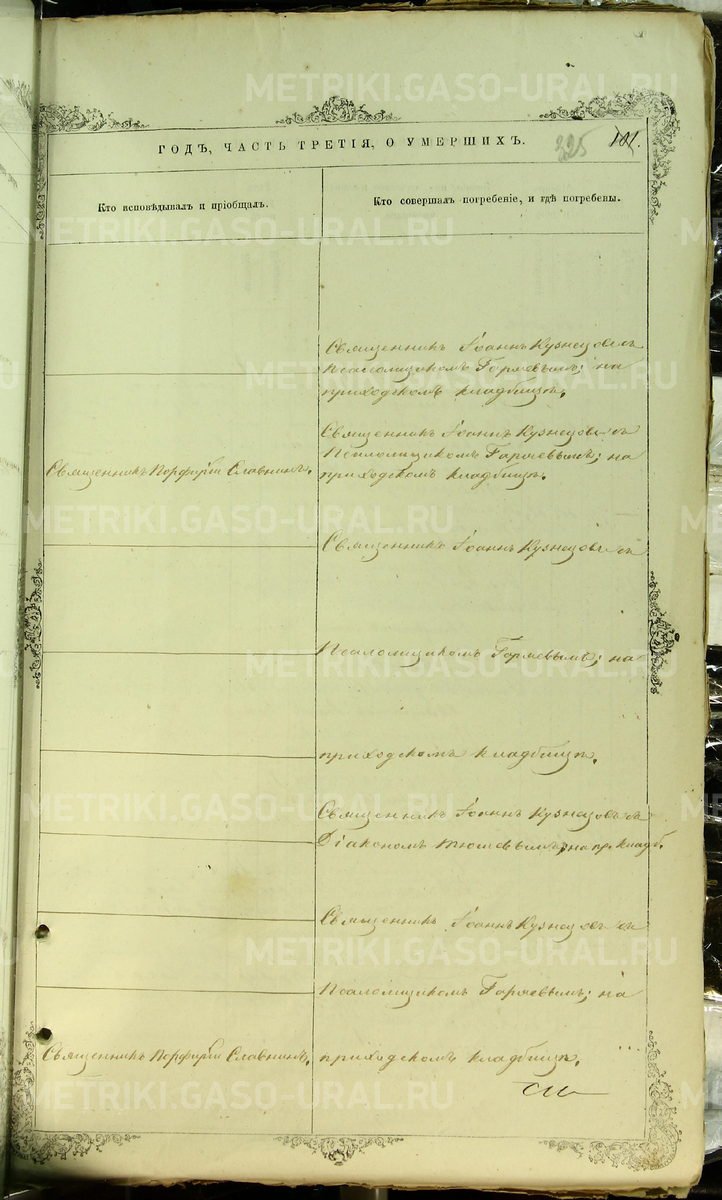 METRIKI.GASO-URAL.RU
ГОДЪ, ЧАСТЬ ТРЕТІЯ, О УМЕРШИХЪ.
325
101.
Кто исповѣдывалъ и пріобщалъ.
Кто совершалъ погребеніе, и гдѣ погребены.
Священникъ Іоаннъ Кузнецовъ съ
Псаломщикомъ Горяевымъ; на
приходскомъ кладбищѣ.
Священникъ Порфирій Славнинъ.
Священникъ Іоаннъ Кузнецовъ съ
Псаломщикомъ Горяевымъ; на
приходскомъ кладбищѣ.
Священникъ Іоаннъ Кузнецовъ съ
Псаломщикомъ Горяевымъ; на
приходскомъ кладбищѣ.
Священникъ Іоаннъ Кузнецовъ съ
Діакономъ на пр. кладб.
Священникъ Іоаннъ Кузнецовъ съ
Псаломщикомъ Горяевымъ; на
Священникъ Порфирій Славнинъ.
приходскомъ кладбищѣ.